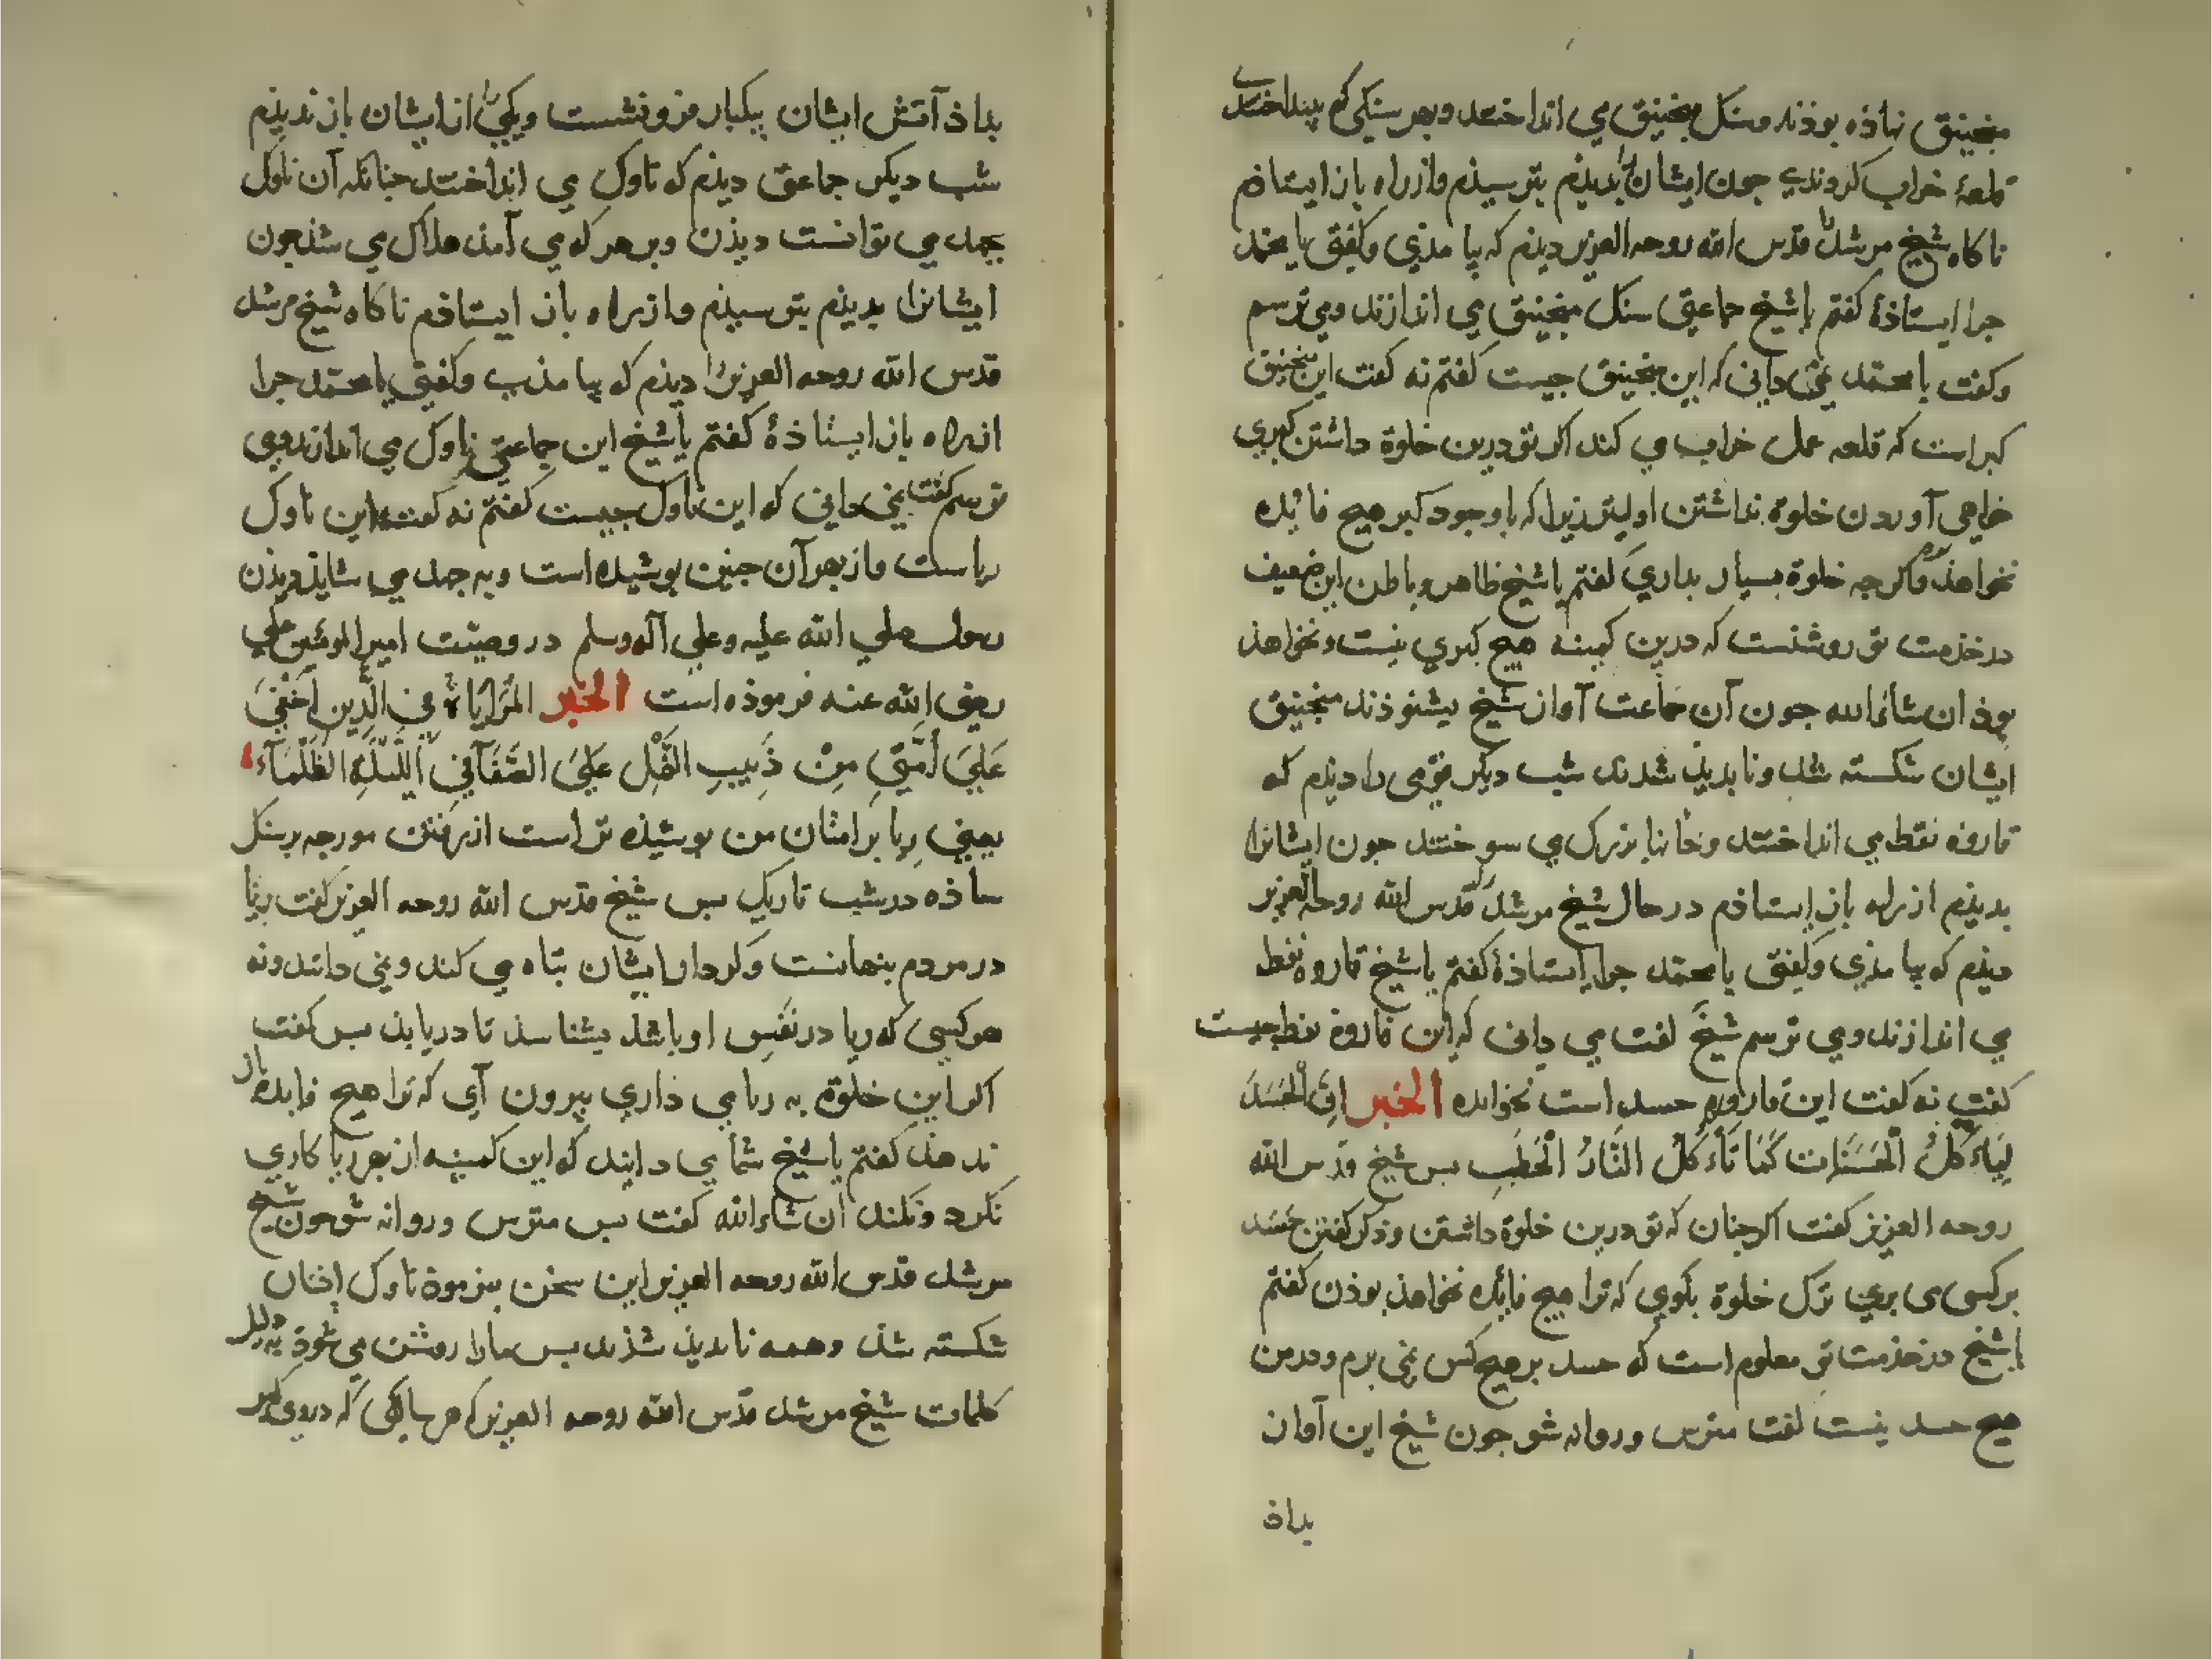 منجنیق نهاذه بوذند و سنک منجنیق می انداختند و بهر سنکی که بینداختندی
قلعۀ خراب کردندی جون ایشان را بدیذم بترسیذم و از راه باز ایستاذم
ناکاه شیخ مرشد را قدس الله روحه العزیز دیذم که بیامذی و کفتی یا محمد
جرا ایستاذۀ کفتم یا شیخ جماعتی سنک منجنیق می اندازند و می ترسم
و کفت یا محمد نمی دانی که این منجنیق جیست کفتم نه کفت این منجنیق
کبر است که قلعه عمل خراب می کند اکر تو درین خلوة داشتن کبری
خواهی آوردن خلوة نداشتن اولیتر زیرا که با وجود کبر هیج فائده
نخواهذ بوذ و اکرجه خلوة بسیار بداری کفتم یا شیخ ظاهر و باطن این ضعیف
در خدمت تو روشنست که درین کمینه هیج کبری نیست و نخواهذ
بوذ ان شاء الله جون آن جماعت آواز شیخ بشنوذند منجنیق
ایشان شکسته شد و نابدیذ شدند شب دیکر قومی را دیذم که
قاروره نفط می انداختند و خانها بزرک می سوختند جون ایشانرا
بدیذم از راه باز ایستاذم در حال شیخ مرشد را قدس الله روحه العزیز
دیذم که بیامذی و کفتی یا محمد جرا ایستاذۀ کفتم یا شیخ قاروره نفط
می اندازند و می ترسم شیخ کفت می دانی که این قاروره نفط جیست
کفتم نه کفت این قاروره حسد است نخوانده الخبر اِنَّ الْحَسَدَ
لَیَاءْکُلُ الْحَسَنَاتِ کَمَا تَاءْکُلُ النَّارُ الْحَطَبِ بس شیخ قدس الله
روحه العزیز کفت اکر جنان که تو درین خلوة داشتن و ذکر کفتن حسد
بر کسی می بری ترک خلوة بکوی که ترا هیج فائده نخواهذ بوذن کفتم
یا شیخ در خدمت تو معلوم است که حسد بر هیج کس نمی برم و در من
هیج حسد نیست کفت مترس و روانه شو جون شیخ این آواز
بداذ
بداذ آتش ایشان بیکبار فرو نشست و یکی را از ایشان باز ندیذم
شب دیکر جماعتی دیذم که ناوک می انداختند جنانکه آن ناوک
بجهد می توانست دیذن و بر هر که می آمذ هلاک می شذ جون
ایشانرا بدیذم بترسیذم و از راه باز ایستاذم ناکاه شیخ مرشد
قدس الله روحه العزیز را دیذم که بیامذی و کفتی یا محمد جرا
از راه باز ایستاذۀ کفتم یا شیخ این جماعتی ناوک می اندازند و می
ترسم کفت نمی دانی که این ناوک جیست کفتم نه کفت این ناوک
ریاست و از بهر آن جنین بوشیده است و به جهد می شایذ دیذن
رسول صلی الله علیه و علی آله وسلم در وصیّت امیر المومنین علی
رضی الله عنه فرموذه است الخبر المُرَایَاةُ فِی الدِّینِ اَخْفَیَ
عَلیَ اُمَّتِی مِنْ دَبِیبِ النَّمْلِ عَلیَ الصَّفَآ فِی اللَّیْلَةِ الظَّلْمَآءِ
یعنی رِیا بر امتان من بوشیذه تر است از رفتن مورجه بر سنک
ساذه در شب تاریک بس شیخ قدس الله روحه العزیز کفت ریا
در مردم بنهانست و کردار ایشان تباه می کند و نمی دانند و نه
هر کسی که ریا در نفس او باشذ بشناسذ تا دریابذ بس کفت
اکر این خلوة به ریا می داری بیرون آی که ترا هیج فایده باز
ندهذ کفتم یا شیخ شما می دانید که این کمینه از بهر ریا کاری
نکرد و نکند ان شاء الله کفت بس مترس و روانه شو جون شیخ
مرشد قدس الله روحه العزیز این سخن بفرموذ ناوک ایشان
شکسته شد و همه نابدیذ شذند بس مارا روشن می شوذ به دلیل
کلمات شیخ مرشد قدس الله روحه العزیز که هر سالکی که در وی کبر